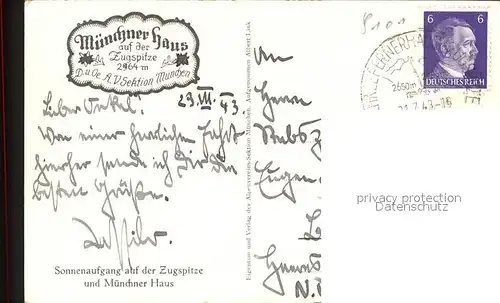 Münchner Haus
auf der
Zugspitze
2964 m
D.u.Oe.A.V. Sektion München
29. VII. 43
Lieber Onkel!
Von einer herrlichen Fahrt
hierher sende ich Dir die
besten Grüße.
Sonnenaufgang auf der Zugspitze
und Münchner Haus
Eigentum und Verlag der Alpenvereins-Sektion München, Aufgenommen Albert Link
An
Herrn
Stabsz
Eugen
Herrns
N.
6 6
DEUTSCHES REICH
2650m
privacy protection
Datenschutz